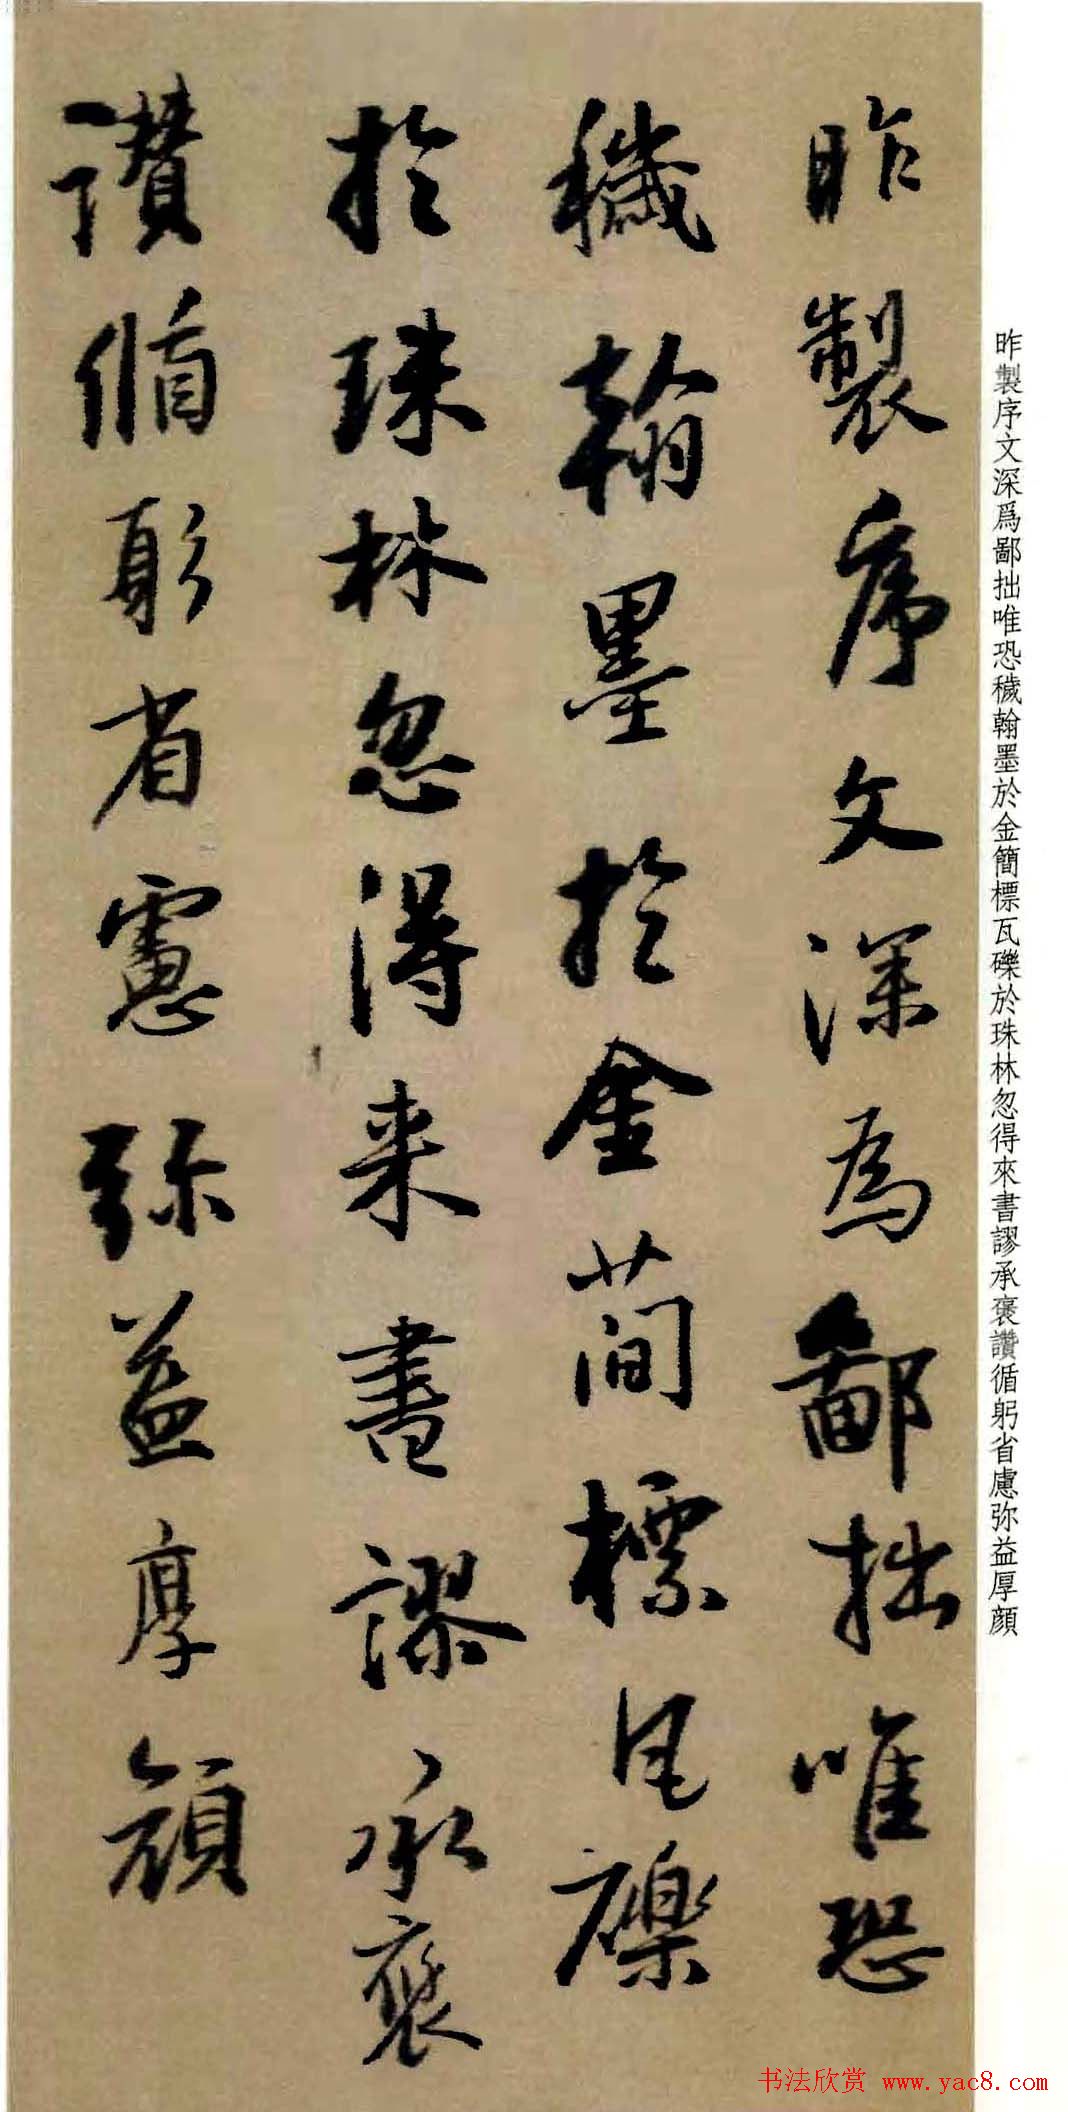 昨製序文深為鄙拙唯恐
穢翰墨於金簡標瓦礫
於珠林忽得来書謬承褒
讚循躬省慮弥益厚顔
昨製序文深爲鄙拙唯恐穢翰墨於金簡標瓦礫於珠林忽得來書謬承褒讚循躬省慮弥益厚顔
书法欣赏 www.yac8.com